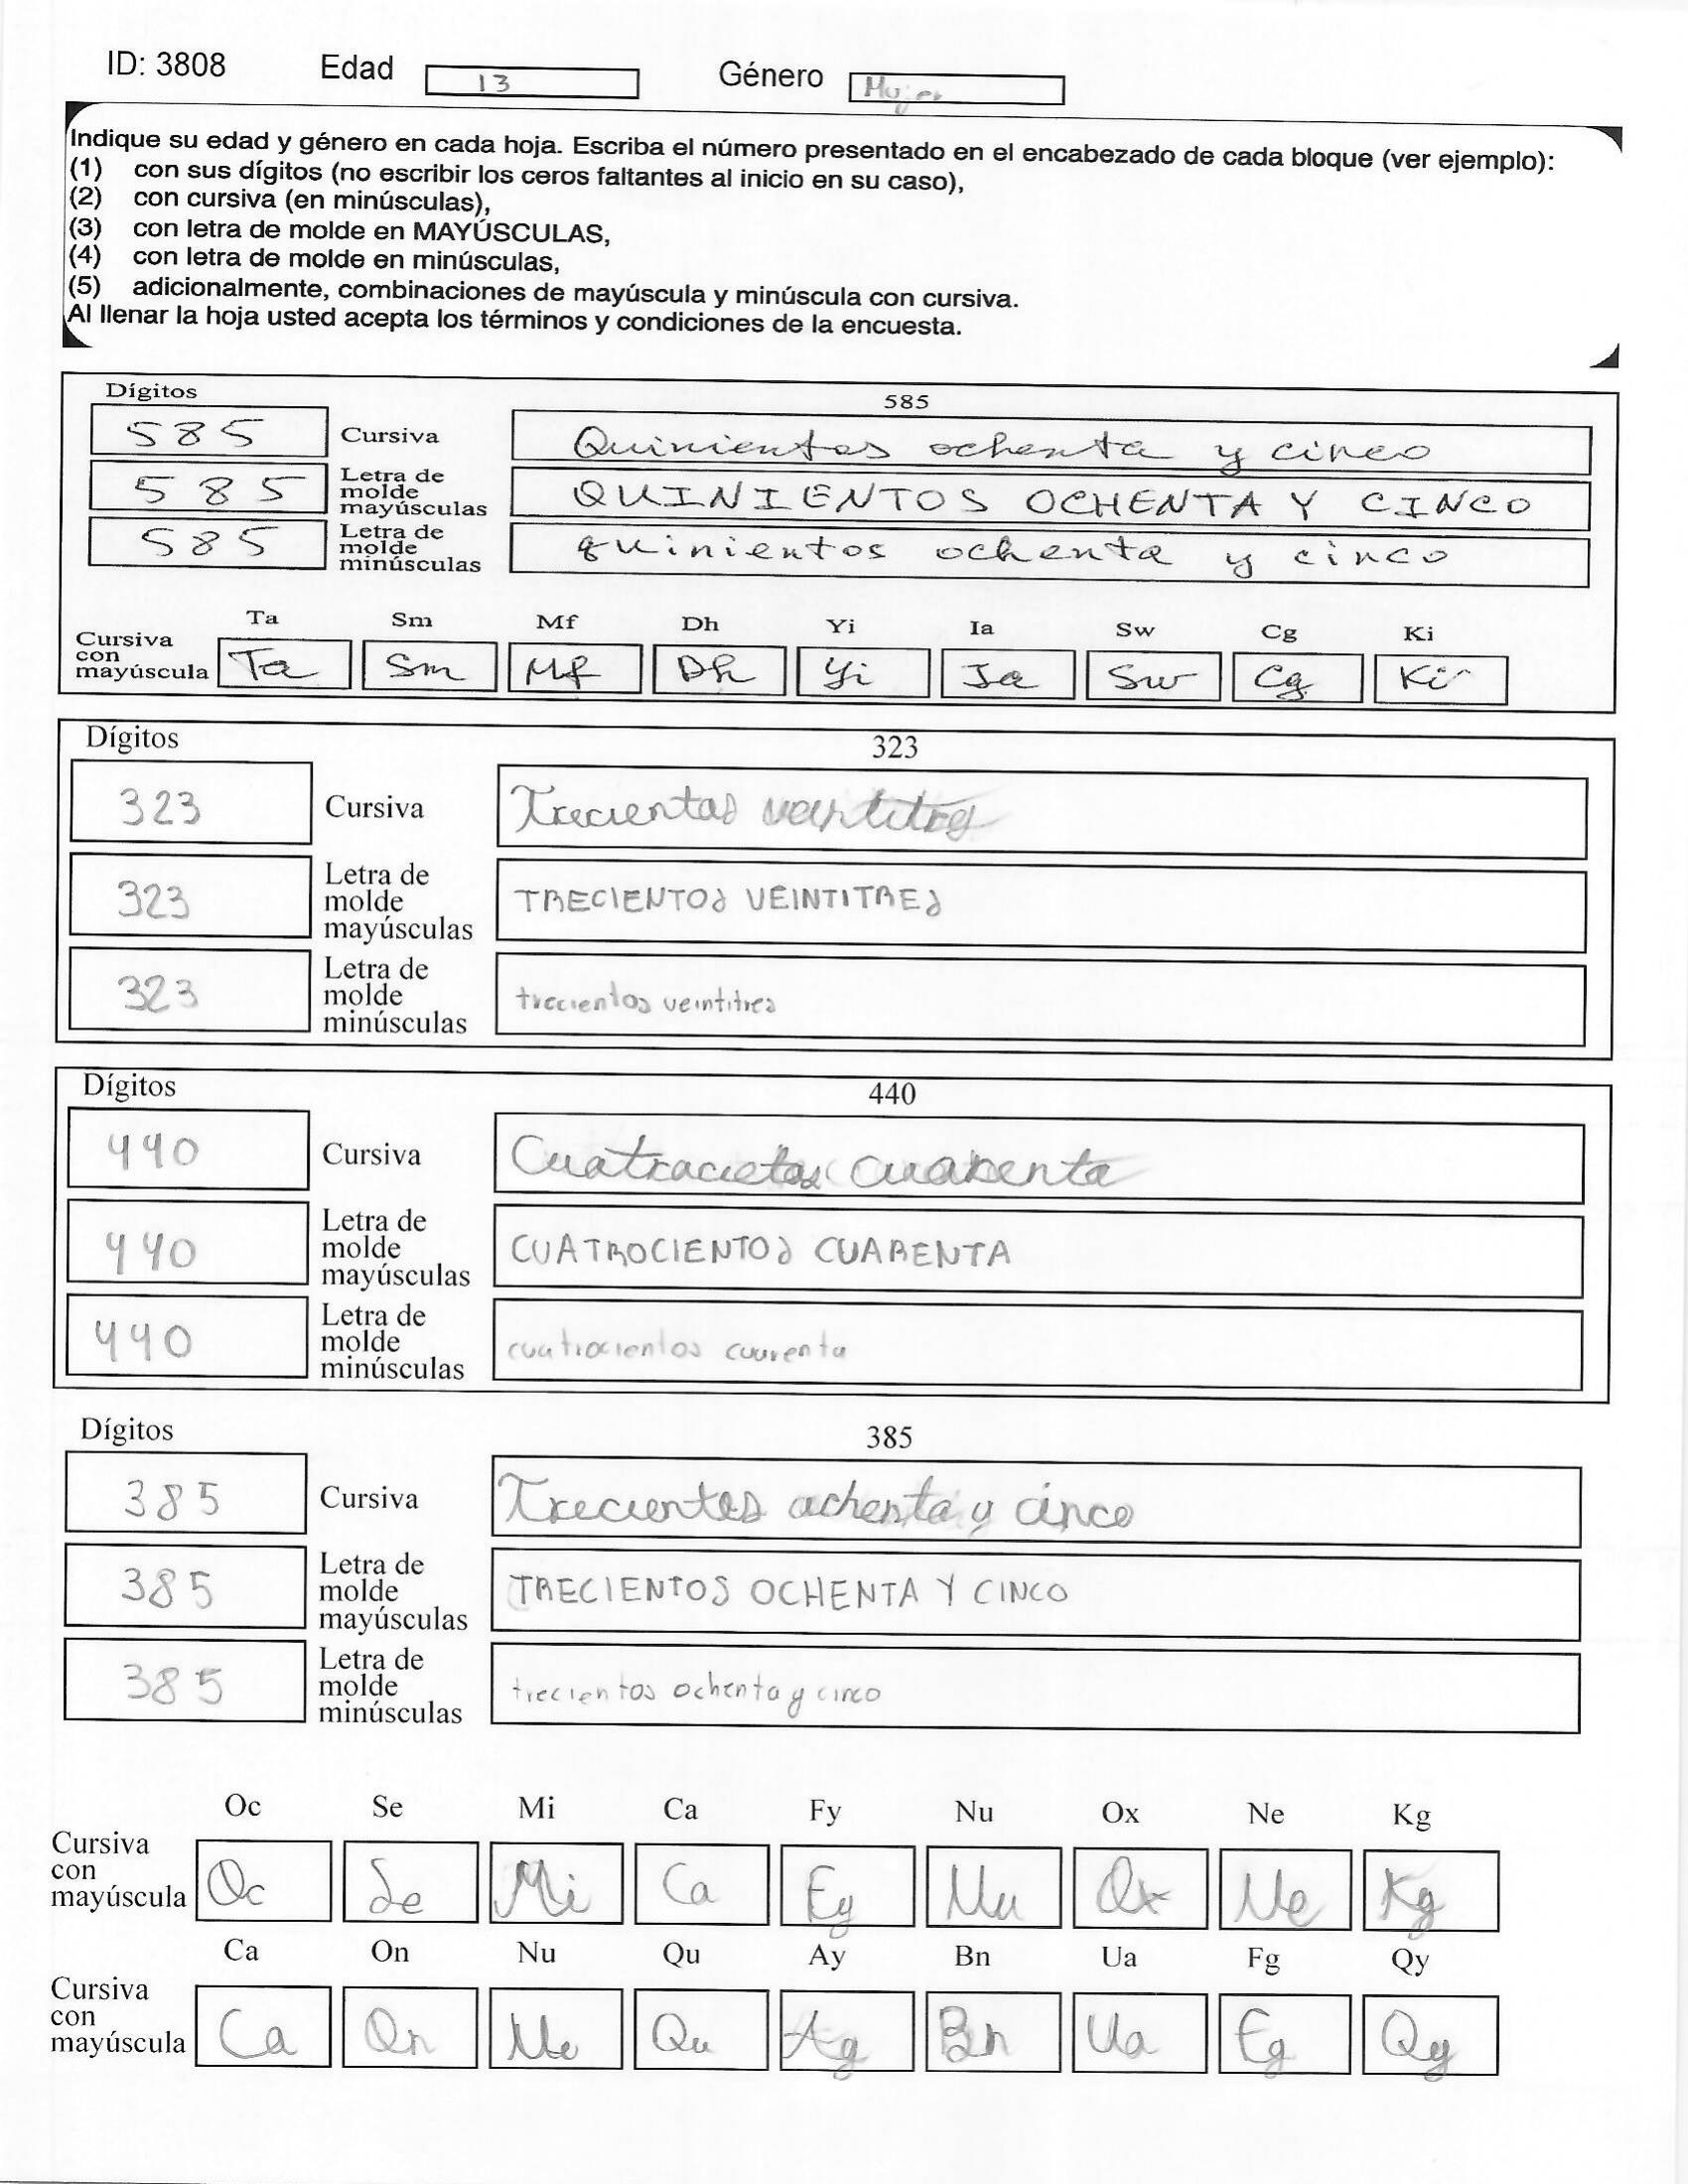 ID: 3808 Edad 13 Género Mujer
Indique su edad y género en cada hoja. Escriba el número presentado en el encabezado de cada bloque (ver ejemplo):
(1) con sus dígitos (no escribir los ceros faltantes al inicio en su caso),
(2) con cursiva (en minúsculas),
(3) con letra de molde en MAYÚSCULAS,
(4) con letra de molde en minúsculas,
(5) adicionalmente, combinaciones de mayúscula y minúscula con cursiva.
Al llenar la hoja usted acepta los términos y condiciones de la encuesta.
Dígitos 585
585 Cursiva Quinientos ochenta y cinco
585 Letra de molde mayúsculas QUINIENTOS OCHENTA Y CINCO
585 Letra de molde minúsculas quinientos ochenta y cinco
Ta Sm Mf Dh Yi Ia Sw Cg Ki
Cursiva con mayúscula Ta Sm Mf Dh Yi Ia Sw Cg Ki
Dígitos 323
323 Cursiva Trecientos veintitres
323 Letra de molde mayúsculas TRECIENTOS VEINTITRES
323 Letra de molde minúsculas trecientos veintitres
Dígitos 440
440 Cursiva Cuatrocietos cuarenta
440 Letra de molde mayúsculas CUATROCIENTOS CUARENTA
440 Letra de molde minúsculas cuatrocientos cuarenta
Dígitos 385
385 Cursiva Trecientos ochenta y cinco
385 Letra de molde mayúsculas TRECIENTOS OCHENTA Y CINCO
385 Letra de molde minúsculas trecientos ochenta y cinco
Oc Se Mi Ca Fy Nu Ox Ne Kg
Cursiva con mayúscula Oc Se Mi Ca Fy Nu Ox Ne Kg
Ca On Nu Qu Ay Bn Ua Fg Qy
Cursiva con mayúscula Ca On Nu Qu Ay Bn Ua Fg Qy